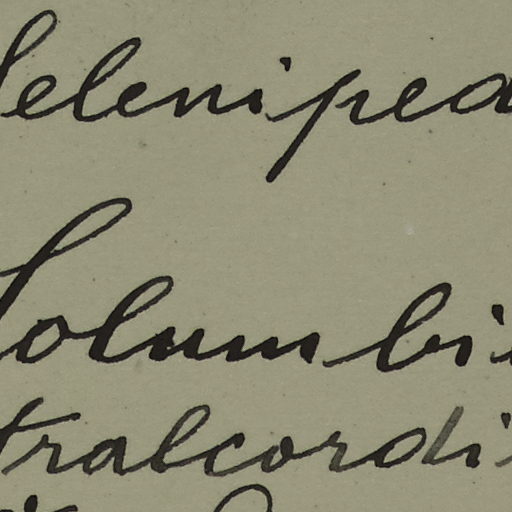 Seleniped
Columbi
tralcordi